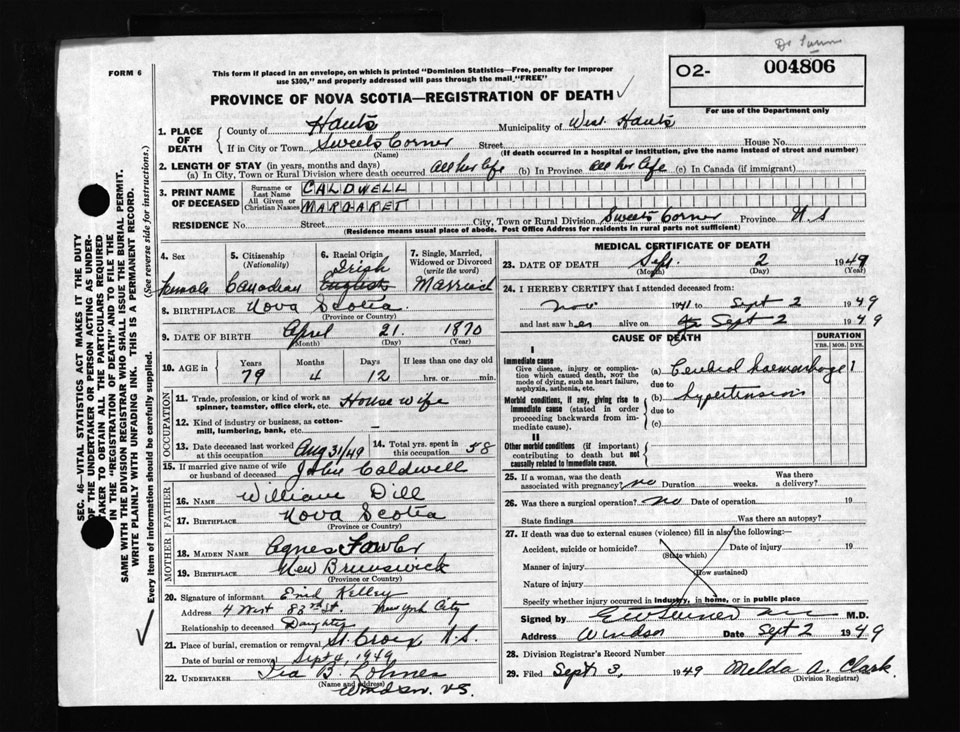 FORM 6
This form if placed in an envelope, on which is printed "Dominion Statistics—Free, penalty for improper
use $300," and properly addressed will pass through the mail "FREE"
PROVINCE OF NOVA SCOTIA—REGISTRATION OF DEATH
O2- 004806
For use of the Department only
1. PLACE OF DEATH
County of Hants Municipality of West Hants
If in City or Town Sweets Corner Street House No.
(Name) (If death occurred in a hospital or institution, give the name instead of street and number)
2. LENGTH OF STAY (in years, months and days)
(a) In City, Town or Rural Division where death occurred all her life (b) In Province all her life (c) In Canada (if immigrant)
3. PRINT NAME OF DECEASED
Surname or Last Name CALDWELL
All Given or Christian Names MARGARET
RESIDENCE No. Street City, Town or Rural Division Sweets Corner Province N.S
(Residence means usual place of abode. Post Office Address for residents in rural parts not sufficient)
4. Sex
female
5. Citizenship
(Nationality)
Canadian
6. Racial Origin
Irish
English
7. Single, Married,
Widowed or Divorced
(write the word)
Married
8. BIRTHPLACE Nova Scotia
(Province or Country)
9. DATE OF BIRTH April 21. 1870
(Month) (Day) (Year)
10. AGE in Years Months Days If less than one day old
79 4 12 hrs. or min.
OCCUPATION
11. Trade, profession, or kind of work as
spinner, teamster, office clerk, etc. House wife
12. Kind of industry or business, as cotton-
mill, lumbering, bank, etc. —
13. Date deceased last worked
at this occupation Aug 31/49
14. Total yrs. spent in
this occupation 58
15. If married give name of wife
or husband of deceased John Caldwell
FATHER
16. NAME William Dill
17. BIRTHPLACE Nova Scotia
(Province or Country)
MOTHER
18. MAIDEN NAME Agnes Fowler
19. BIRTHPLACE New Brunswick
(Province or Country)
20. Signature of informant Enid Kelley
Address 4 West 83rd St. New York City
Relationship to deceased Daughter
21. Place of burial, cremation or removal St. Croix N.S.
Date of burial or removal Sept 4, 1949
22. UNDERTAKER Ira B. Lohnes
(Name and address)
Windsor. N.S.
MEDICAL CERTIFICATE OF DEATH
23. DATE OF DEATH Sept. 2 1949
(Month) (Day) (Year)
24. I HEREBY CERTIFY that I attended deceased from:
Nov 1941 to Sept 2 1949
and last saw her alive on Sept 2 1949
CAUSE OF DEATH
DURATION
YRS. MOS. DYS.
I
Immediate cause
Give disease, injury or complica-
tion which caused death, NOT the
mode of dying, such as heart failure,
asphyxia, asthenia, etc.
(a) Cerebral haemorrhage 1
due to
Morbid conditions, if any, giving rise to
immediate cause (stated in order
proceeding backwards from im-
mediate cause).
(b) hypertension
due to
(c)
II
Other morbid conditions (if important)
contributing to death but not
causally related to immediate cause.
25. If a woman, was the death
associated with pregnancy? no Duration weeks. Was there
a delivery?
26. Was there a surgical operation? no Date of operation 19
State findings Was there an autopsy?
27. If death was due to external causes (violence) fill in also the following:
Accident, suicide or homicide? Date of injury 19
(State which)
Manner of injury
(How sustained)
Nature of injury
Specify whether injury occurred in industry, in home, or in public place
Signed by M.D.
Address Windsor Date Sept 2 1949
28. Division Registrar's Record Number
29. Filed Sept 3, 1949 Melda A. Clark
(Division Registrar)
SEC. 46—VITAL STATISTICS ACT MAKES IT THE DUTY
OF THE UNDERTAKER OR PERSON ACTING AS UNDER-
TAKER TO OBTAIN ALL THE PARTICULARS REQUIRED
IN THE "REGISTRATION OF DEATH" AND TO FILE THE
SAME WITH THE DIVISION REGISTRAR WHO SHALL ISSUE THE BURIAL PERMIT.
WRITE PLAINLY WITH UNFADING INK. THIS IS A PERMANENT RECORD.
Every item of information should be carefully supplied. (See reverse side for instructions.)